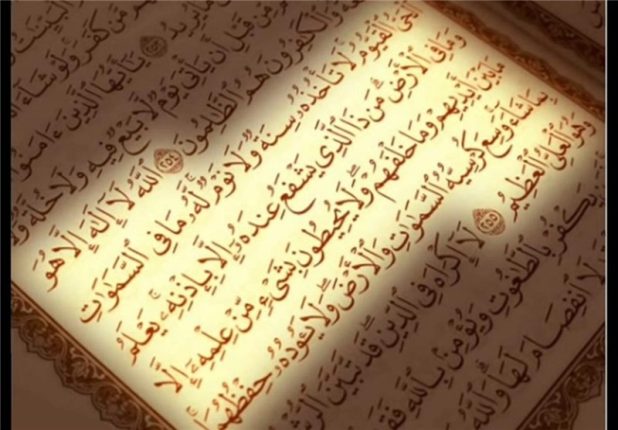 ٱلۡبَيِّنَٰتُ
مَّن كَفَرَۚ وَلَوۡ شَآءَ
مَا يُرِيدُ ٢٥٣ يَٰٓأَيُّهَا ٱلَّذِينَ ءَامَنُوٓاْ
مِّن قَبۡلِ أَن يَأۡتِيَ يَوۡمٞ لَّا بَيۡعٞ فِيهِ وَلَا خُلَّةٞ
وَٱلۡكَٰفِرُونَ هُمُ ٱلظَّٰلِمُونَ ٢٥٤ ٱللَّهُ لَآ إِلَٰهَ إِلَّا هُوَ
ٱلۡحَيُّ ٱلۡقَيُّومُۚ لَا تَأۡخُذُهُۥ سِنَةٞ وَلَا نَوۡمٞۚ لَّهُۥ مَا فِي ٱلسَّمَٰوَٰتِ
وَمَا فِي ٱلۡأَرۡضِۗ مَن ذَا ٱلَّذِي يَشۡفَعُ عِندَهُۥٓ إِلَّا بِإِذۡنِهِۦۚ يَعۡلَمُ
مَا بَيۡنَ أَيۡدِيهِمۡ وَمَا خَلۡفَهُمۡۖ وَلَا يُحِيطُونَ بِشَيۡءٖ مِّنۡ عِلۡمِهِۦٓ إِلَّا
بِمَا شَآءَۚ وَسِعَ كُرۡسِيُّهُ ٱلسَّمَٰوَٰتِ وَٱلۡأَرۡضَۖ وَلَا يَـُٔودُهُۥ حِفۡظُهُمَاۚ
وَهُوَ ٱلۡعَلِيُّ ٱلۡعَظِيمُ ٢٥٥ لَآ إِكۡرَاهَ فِي ٱلدِّينِۖ قَد تَّبَيَّنَ ٱلرُّشۡدُ
يَكۡفُرۡ بِٱلطَّٰغُوتِ وَيُؤۡمِنۢ بِٱللَّهِ فَقَدِ
لَا ٱنفِصَامَ لَهَاۗ وَٱللَّهُ